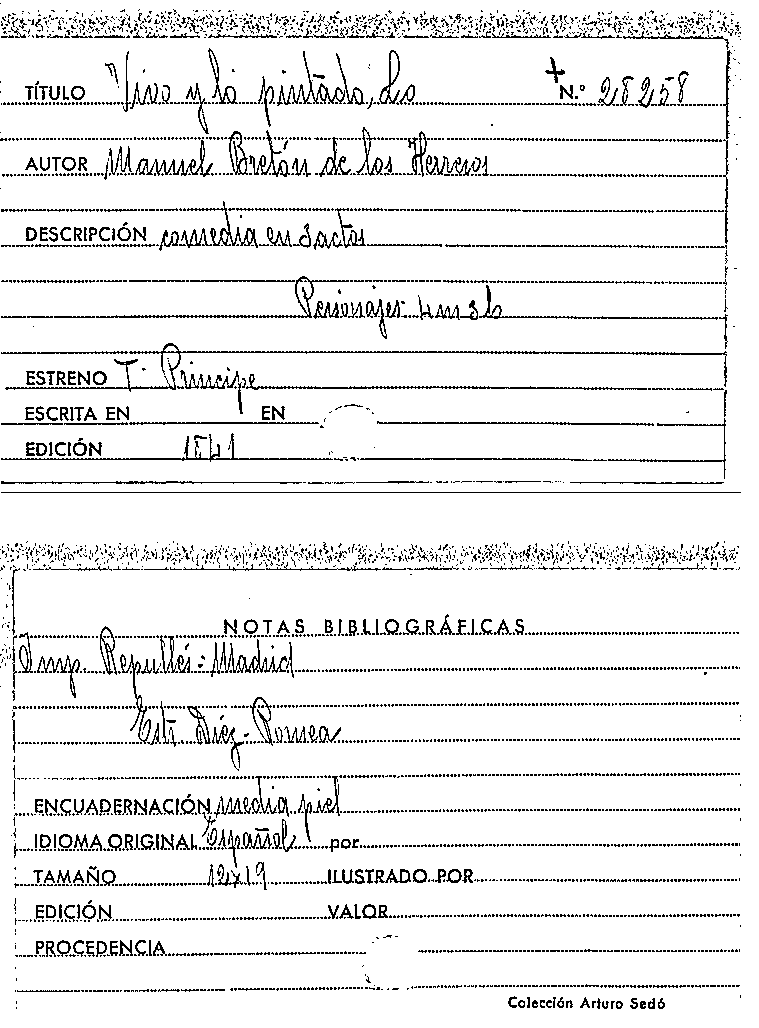 TÍTULO Vivo y lo pintado, Lo N.º 28258
AUTOR Manuel Bretón de los Herreros
DESCRIPCIÓN comedia en 3 actos
Personajes 4 m 3 h
ESTRENO T. Principe
ESCRITA EN EN
EDICIÓN 1841
NOTAS BIBLIOGRÁFICAS
Imp. Repullés - Madrid
Estr. Díez - Romea
ENCUADERNACIÓN media piel
IDIOMA ORIGINAL Español por
TAMAÑO 12x19 ILUSTRADO POR
EDICIÓN VALOR
PROCEDENCIA
Colección Arturo Sedó